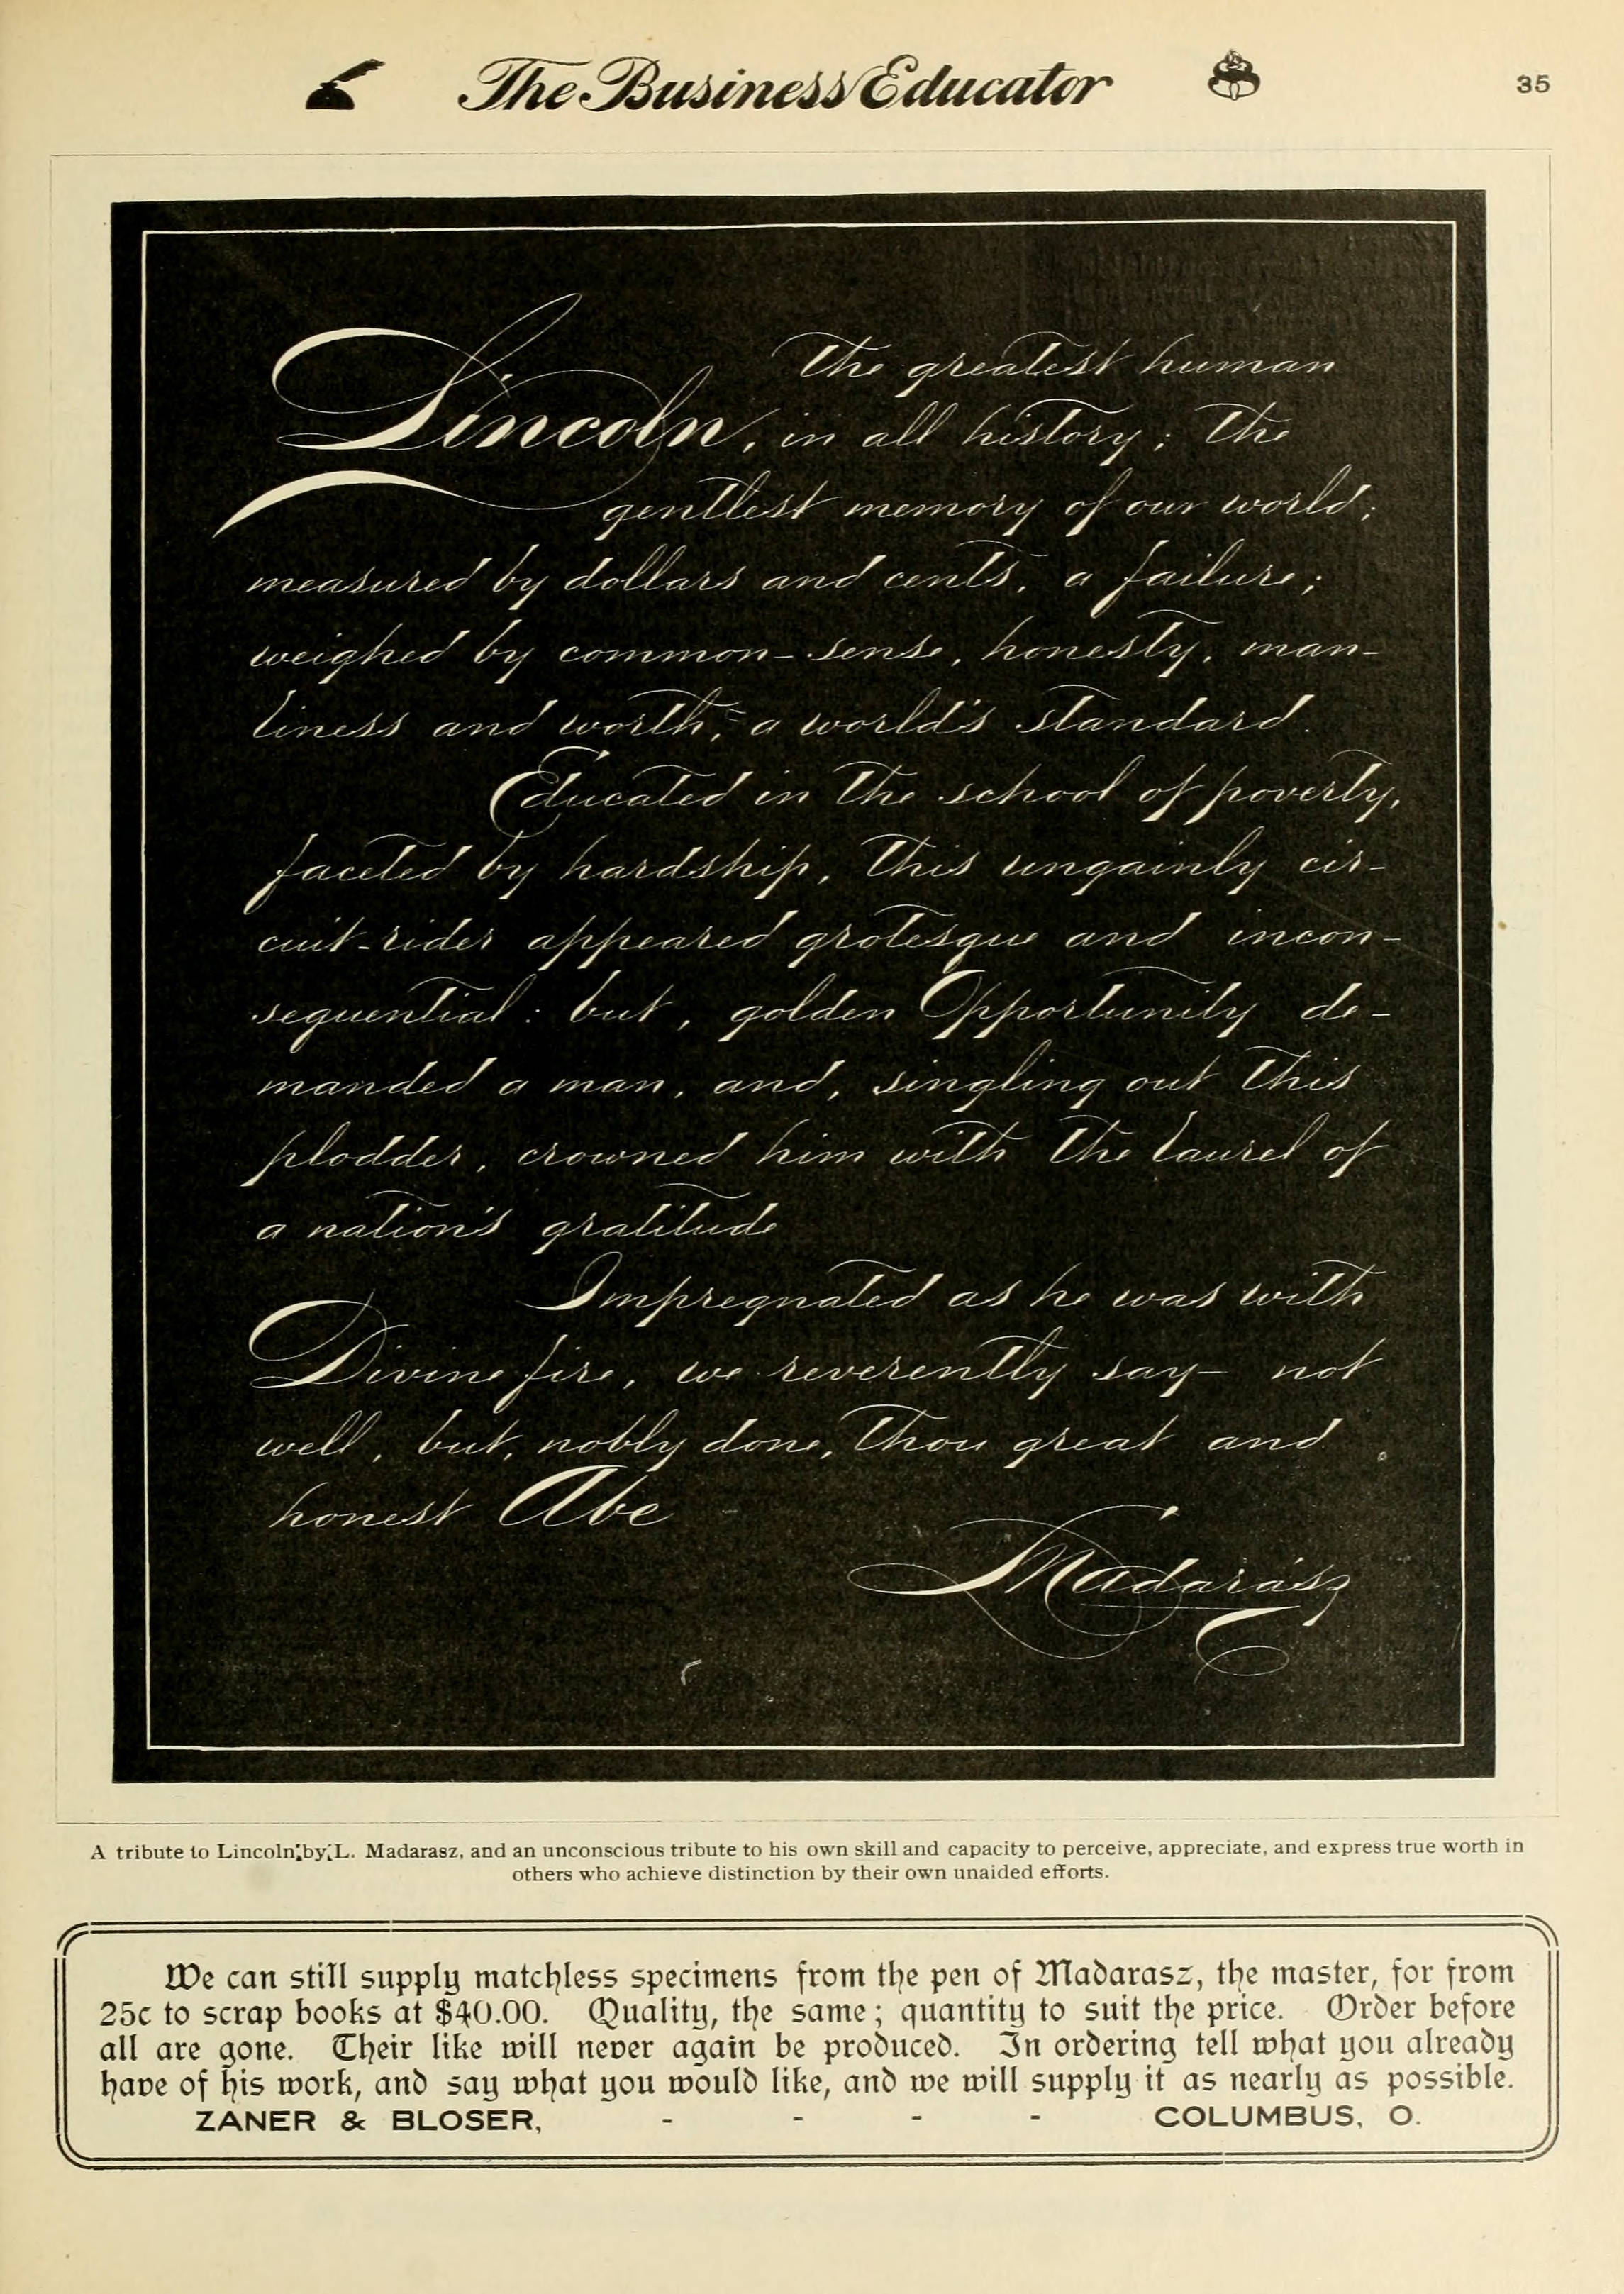 The Business Educator
35
The greatest human
Lincoln, in all history; the
gentlest memory of our world;
measured by dollars and cents, a failure;
weighed by common-sense, honesty, man-
liness and worth, a world's standard.
Educated in the school of poverty,
faceted by hardship, this ungainly cir-
cuit-rider appeared grotesque and incon-
sequential: but, golden Opportunity de-
manded a man, and, singling out this
plodder, crowned him with the laurel of
a nation's gratitude
Impregnated as he was with
Divine fire, we reverently say— not
well, but, nobly done, thou great and
honest Abe
Madarász
A tribute to Lincoln by L. Madarasz, and an unconscious tribute to his own skill and capacity to perceive, appreciate, and express true worth in
others who achieve distinction by their own unaided efforts.
We can still supply matchless specimens from the pen of Madarasz, the master, for from
25c to scrap books at $40.00. Quality, the same; quantity to suit the price. Order before
all are gone. Their like will never again be produced. In ordering tell what you already
have of his work, and say what you would like, and we will supply it as nearly as possible.
ZANER & BLOSER, - - - - COLUMBUS, O.